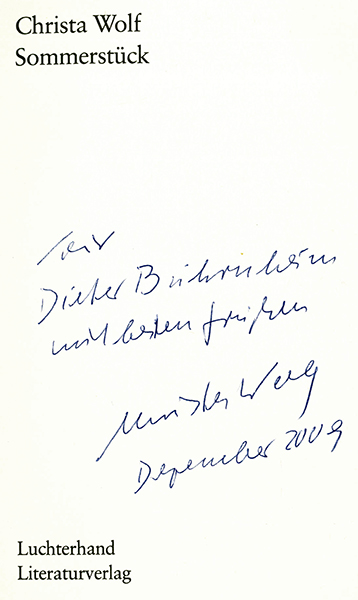 Christa Wolf
Sommerstück
für
Dieter Bührnheim
mit besten Grüßen
Christa Wolf
Dezember 2009
Luchterhand
Literaturverlag